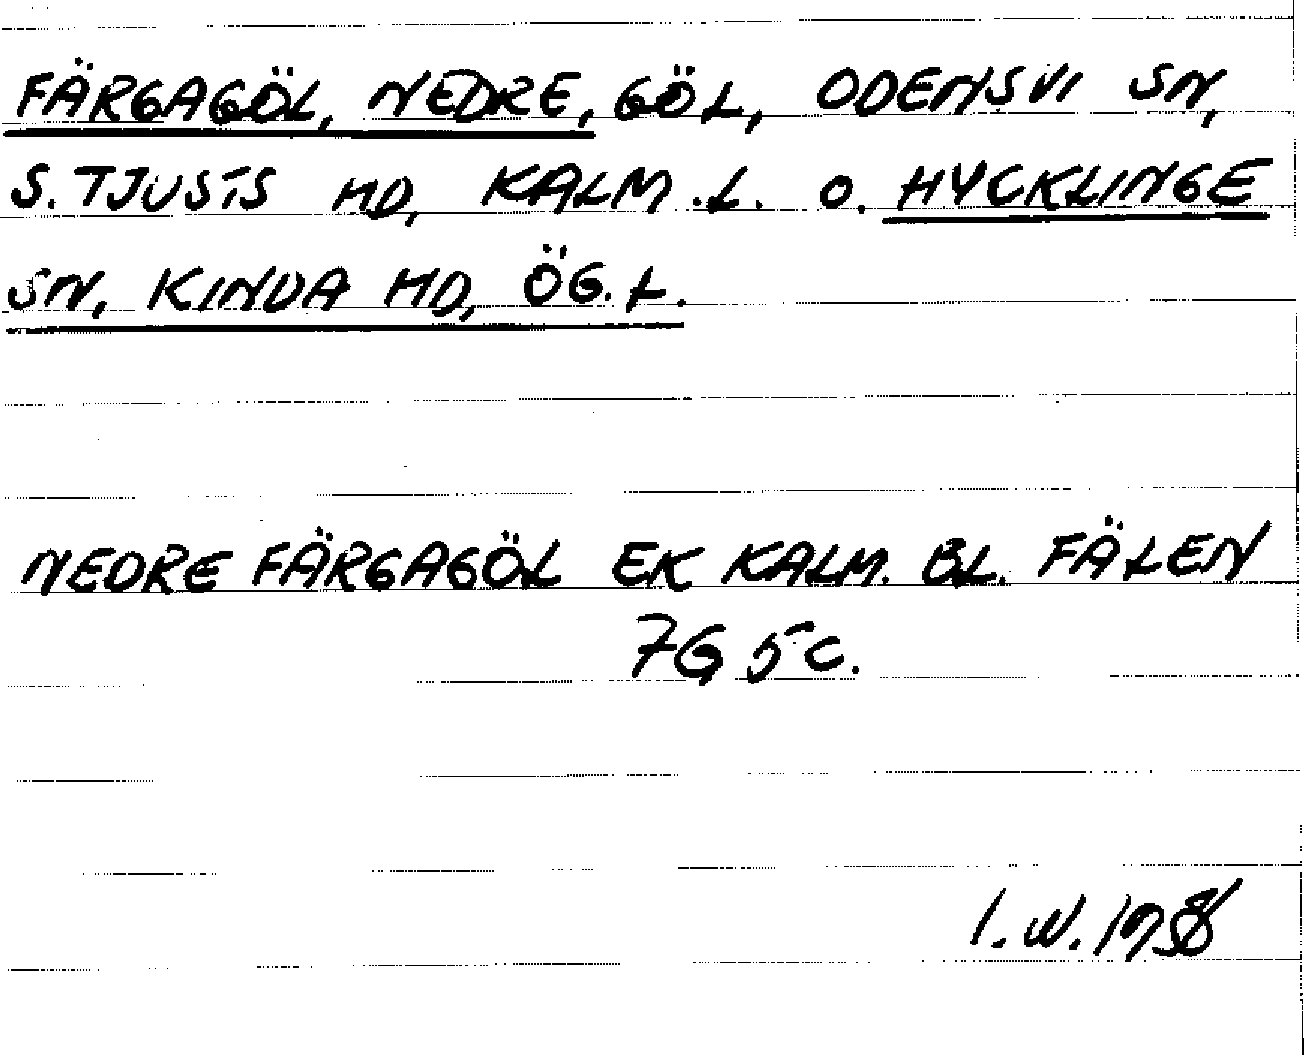 FÄRGAGÖL, NEDRE, GÖL, ODENSVI SN,
S. TJUSTS HD, KALM.L. O. HYCKLINGE
SN, KINDA HD, ÖG.L.
NEDRE FÄRGAGÖL EK KALM. BL. FÄLEN
7G 5c.
I.W.